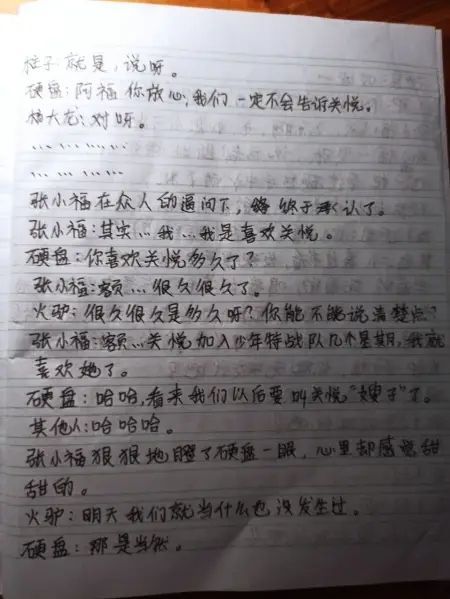 柱子就是,说呀。
硬盘:阿福你放心,我们一定不会告诉关悦。
杨大龙:对呀。
… … … … …
… … … …
张小福在众人的逼问下,终于承认了。
张小福:其实…我…我是喜欢关悦。
硬盘:你喜欢关悦多久了?
张小福:额…很久很久了。
火驴:很久很久是多久呀?你能不能说清楚点?
张小福:额…关悦加入少年特战队几个星期,我就
喜欢她了。
硬盘:哈哈,看来我们以后要叫关悦“嫂子”了。
其他人:哈哈哈。
张小福狠狠地瞪了硬盘一眼,心里却感觉甜
甜的。
火驴:明天我们就当什么也没发生过。
硬盘:那是当然。